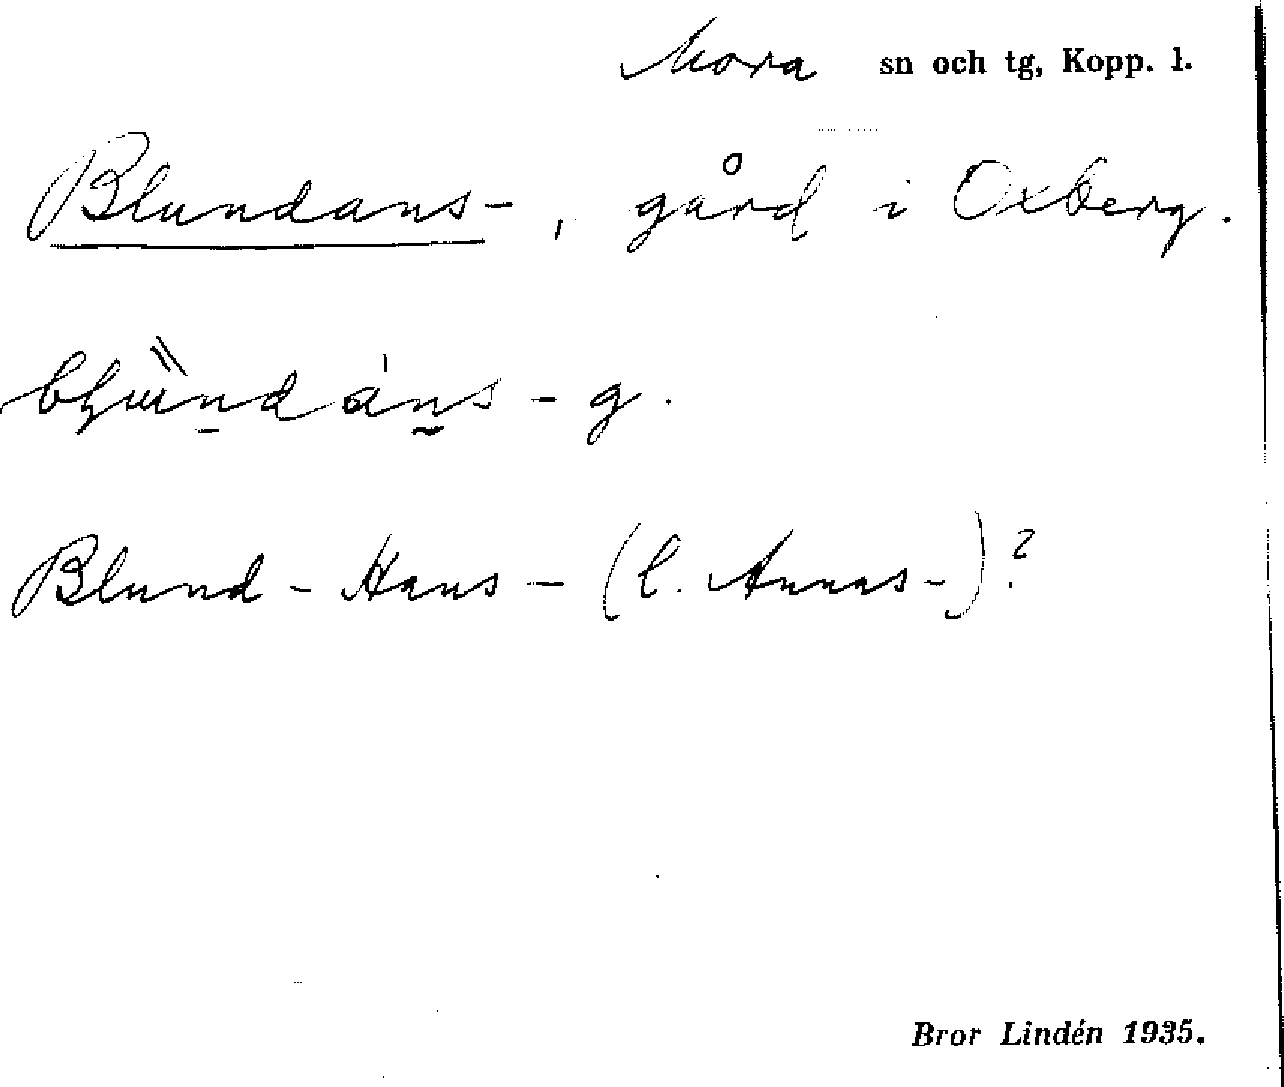 Mora sn och tg, Kopp. l.
Blundans-, gård i Oxberg.
- g.
Blund - Hans - (l. Annas-)?
Bror Lindén 1935.